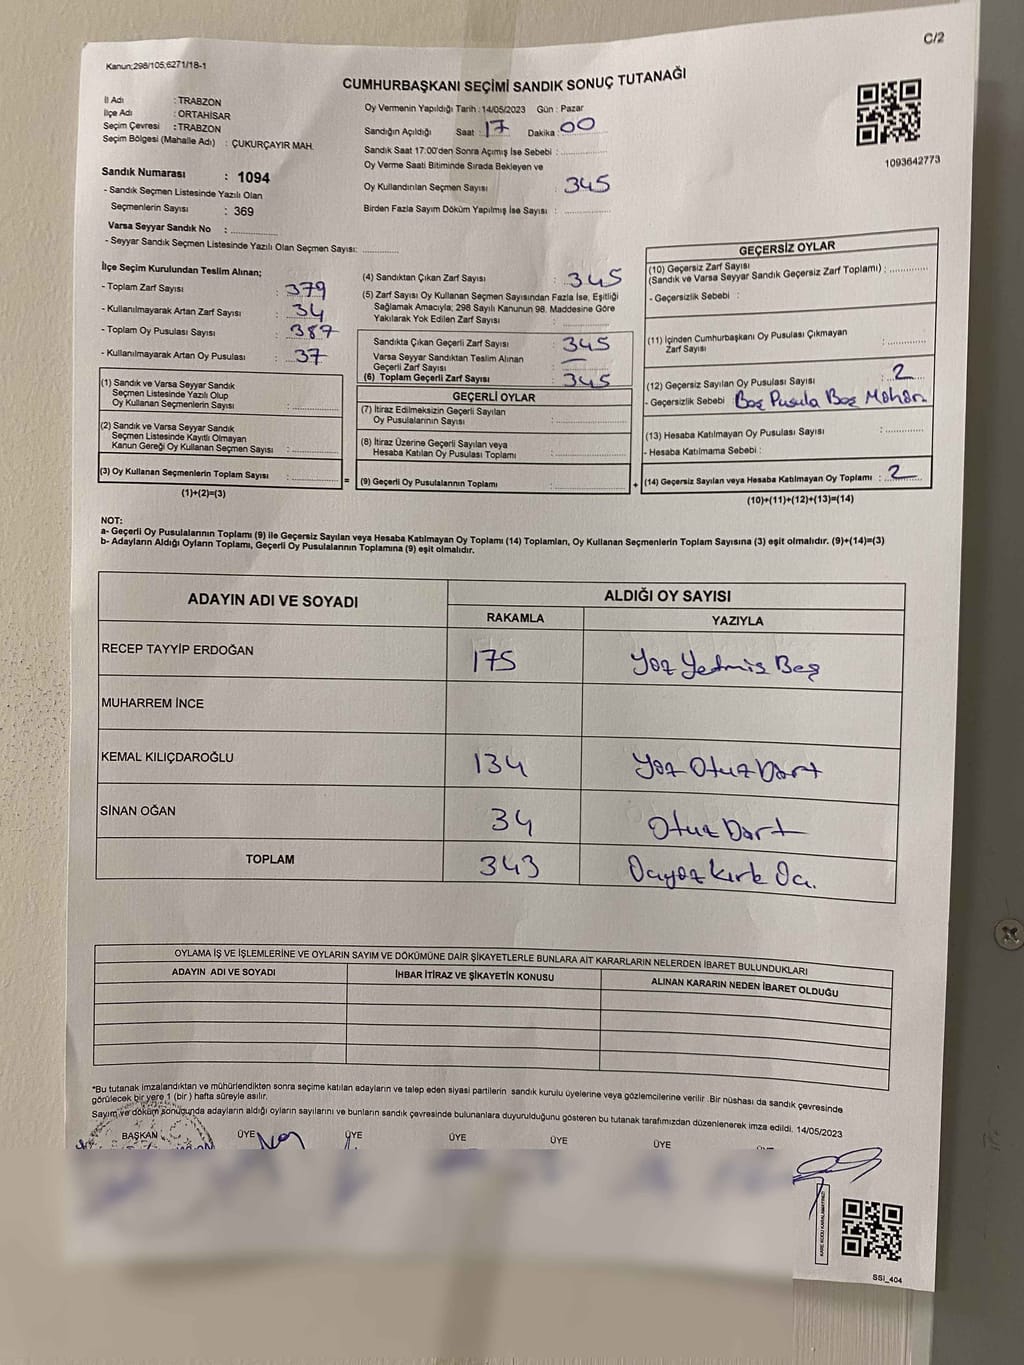 C/2
Kanun;298/105;6271/18-1
CUMHURBAŞKANI SEÇİMİ SANDIK SONUÇ TUTANAĞI
İl Adı : TRABZON
İlçe Adı : ORTAHİSAR
Seçim Çevresi : TRABZON
Seçim Bölgesi (Mahalle Adı) : ÇUKURÇAYIR MAH.
Sandık Numarası : 1094
- Sandık Seçmen Listesinde Yazılı Olan
Seçmenlerin Sayısı : 369
Varsa Seyyar Sandık No : ..............
- Seyyar Sandık Seçmen Listesinde Yazılı Olan Seçmen Sayısı: ............
Oy Vermenin Yapıldığı Tarih : 14/05/2023 Gün : Pazar
Sandığın Açıldığı Saat : 17 Dakika : 00
Sandık Saat 17:00'den Sonra Açımış İse Sebebi : ..............
Oy Verme Saati Bitiminde Sırada Bekleyen ve
Oy Kullandırılan Seçmen Sayısı : 345
Birden Fazla Sayım Döküm Yapılmış İse Sayısı : ..............
1093642773
İlçe Seçim Kurulundan Teslim Alınan;
- Toplam Zarf Sayısı : 379
- Kullanılmayarak Artan Zarf Sayısı : 34
- Toplam Oy Pusulası Sayısı : 387
- Kullanılmayarak Artan Oy Pusulası : 37
(1) Sandık ve Varsa Seyyar Sandık
Seçmen Listesinde Yazılı Olup
Oy Kullanan Seçmenlerin Sayısı : ..............
(2) Sandık ve Varsa Seyyar Sandık
Seçmen Listesinde Kayıtlı Olmayan
Kanun Gereği Oy Kullanan Seçmen Sayısı : ..............
(3) Oy Kullanan Seçmenlerin Toplam Sayısı : .............. =
(1)+(2)=(3)
(4) Sandıktan Çıkan Zarf Sayısı : 345
(5) Zarf Sayısı Oy Kullanan Seçmen Sayısından Fazla İse, Eşitliği
Sağlamak Amacıyla; 298 Sayılı Kanunun 98. Maddesine Göre
Yakılarak Yok Edilen Zarf Sayısı : ..............
Sandıkta Çıkan Geçerli Zarf Sayısı : 345
Varsa Seyyar Sandıktan Teslim Alınan
Geçerli Zarf Sayısı : —
(6) Toplam Geçerli Zarf Sayısı : 345
GEÇERLİ OYLAR
(7) İtiraz Edilmeksizin Geçerli Sayılan
Oy Pusulalarının Sayısı : ..............
(8) İtiraz Üzerine Geçerli Sayılan veya
Hesaba Katılan Oy Pusulası Toplamı : ..............
(9) Geçerli Oy Pusulalarının Toplamı : .............. +
GEÇERSİZ OYLAR
(10) Geçersiz Zarf Sayısı
(Sandık ve Varsa Seyyar Sandık Geçersiz Zarf Toplamı) : ............
- Geçersizlik Sebebi :
(11) İçinden Cumhurbaşkanı Oy Pusulası Çıkmayan
Zarf Sayısı : ............
(12) Geçersiz Sayılan Oy Pusulası Sayısı : 2
- Geçersizlik Sebebi Boş Pusula Boş Mühür.
(13) Hesaba Katılmayan Oy Pusulası Sayısı : ............
- Hesaba Katılmama Sebebi :
(14) Geçersiz Sayılan veya Hesaba Katılmayan Oy Toplamı : 2
(10)+(11)+(12)+(13)=(14)
NOT:
a- Geçerli Oy Pusulalarının Toplamı (9) ile Geçersiz Sayılan veya Hesaba Katılmayan Oy Toplamı (14) Toplamları, Oy Kullanan Seçmenlerin Toplam Sayısına (3) eşit olmalıdır. (9)+(14)=(3)
b- Adayların Aldığı Oyların Toplamı, Geçerli Oy Pusulalarının Toplamına (9) eşit olmalıdır.
ADAYIN ADI VE SOYADI ALDIĞI OY SAYISI
RAKAMLA YAZIYLA
RECEP TAYYİP ERDOĞAN 175 Yüz Yetmiş Beş
MUHARREM İNCE
KEMAL KILIÇDAROĞLU 134 Yüz Otuz Dört
SİNAN OĞAN 34 Otuz Dört
TOPLAM 343 Üçyüz Kırk Üç.
OYLAMA İŞ VE İŞLEMLERİNE VE OYLARIN SAYIM VE DÖKÜMÜNE DAİR ŞİKAYETLERLE BUNLARA AİT KARARLARIN NELERDEN İBARET BULUNDUKLARI
ADAYIN ADI VE SOYADI İHBAR İTİRAZ VE ŞİKAYETİN KONUSU ALINAN KARARIN NEDEN İBARET OLDUĞU
*Bu tutanak imzalandıktan ve mühürlendikten sonra seçime katılan adayların ve talep eden siyasi partilerin sandık kurulu üyelerine veya gözlemcilerine verilir .Bir nüshası da sandık çevresinde
görülecek bir yere 1 (bir ) hafta süreyle asılır.
Sayım ve döküm sonucunda adayların aldığı oyların sayılarını ve bunların sandık çevresinde bulunanlara duyurulduğunu gösteren bu tutanak tarafımızdan düzenlenerek imza edildi. 14/05/2023
BAŞKAN ÜYE ÜYE ÜYE ÜYE ÜYE
KARE KODU KARALAMAYINIZ!
SSI_404